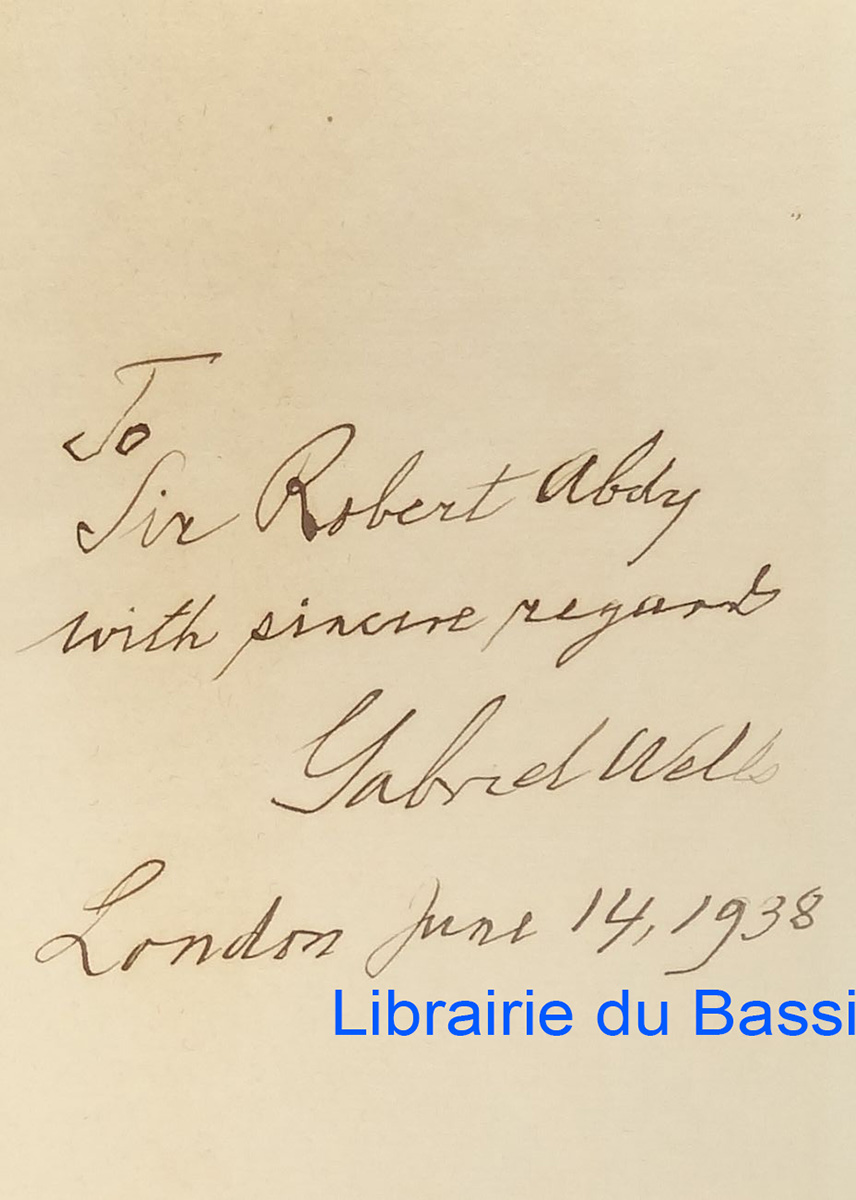 To
Sir Robert Abdy
with sincere regards
Gabriel Wells
London June 14, 1938
Librairie du Bassi